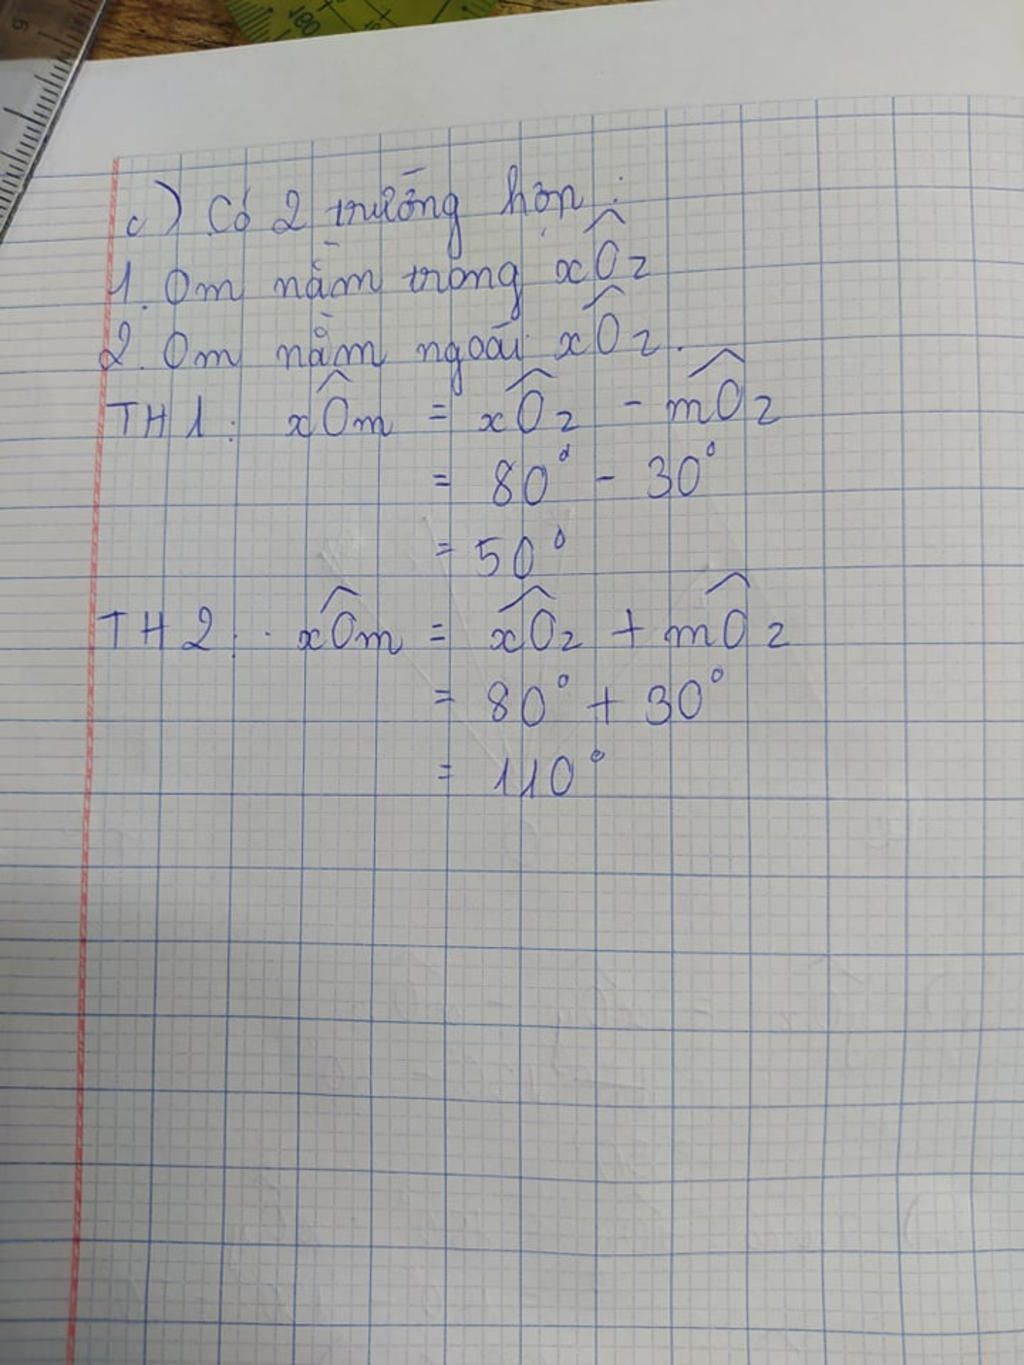 180
c) Có 2 trường hợp:
1. Om nằm trong xÔz
2. Om nằm ngoài xÔz.
TH1: xÔm = xÔz - mÔz
= 80° - 30°
= 50°
TH2: xÔm = xÔz + mÔz
= 80° + 30°
= 110°